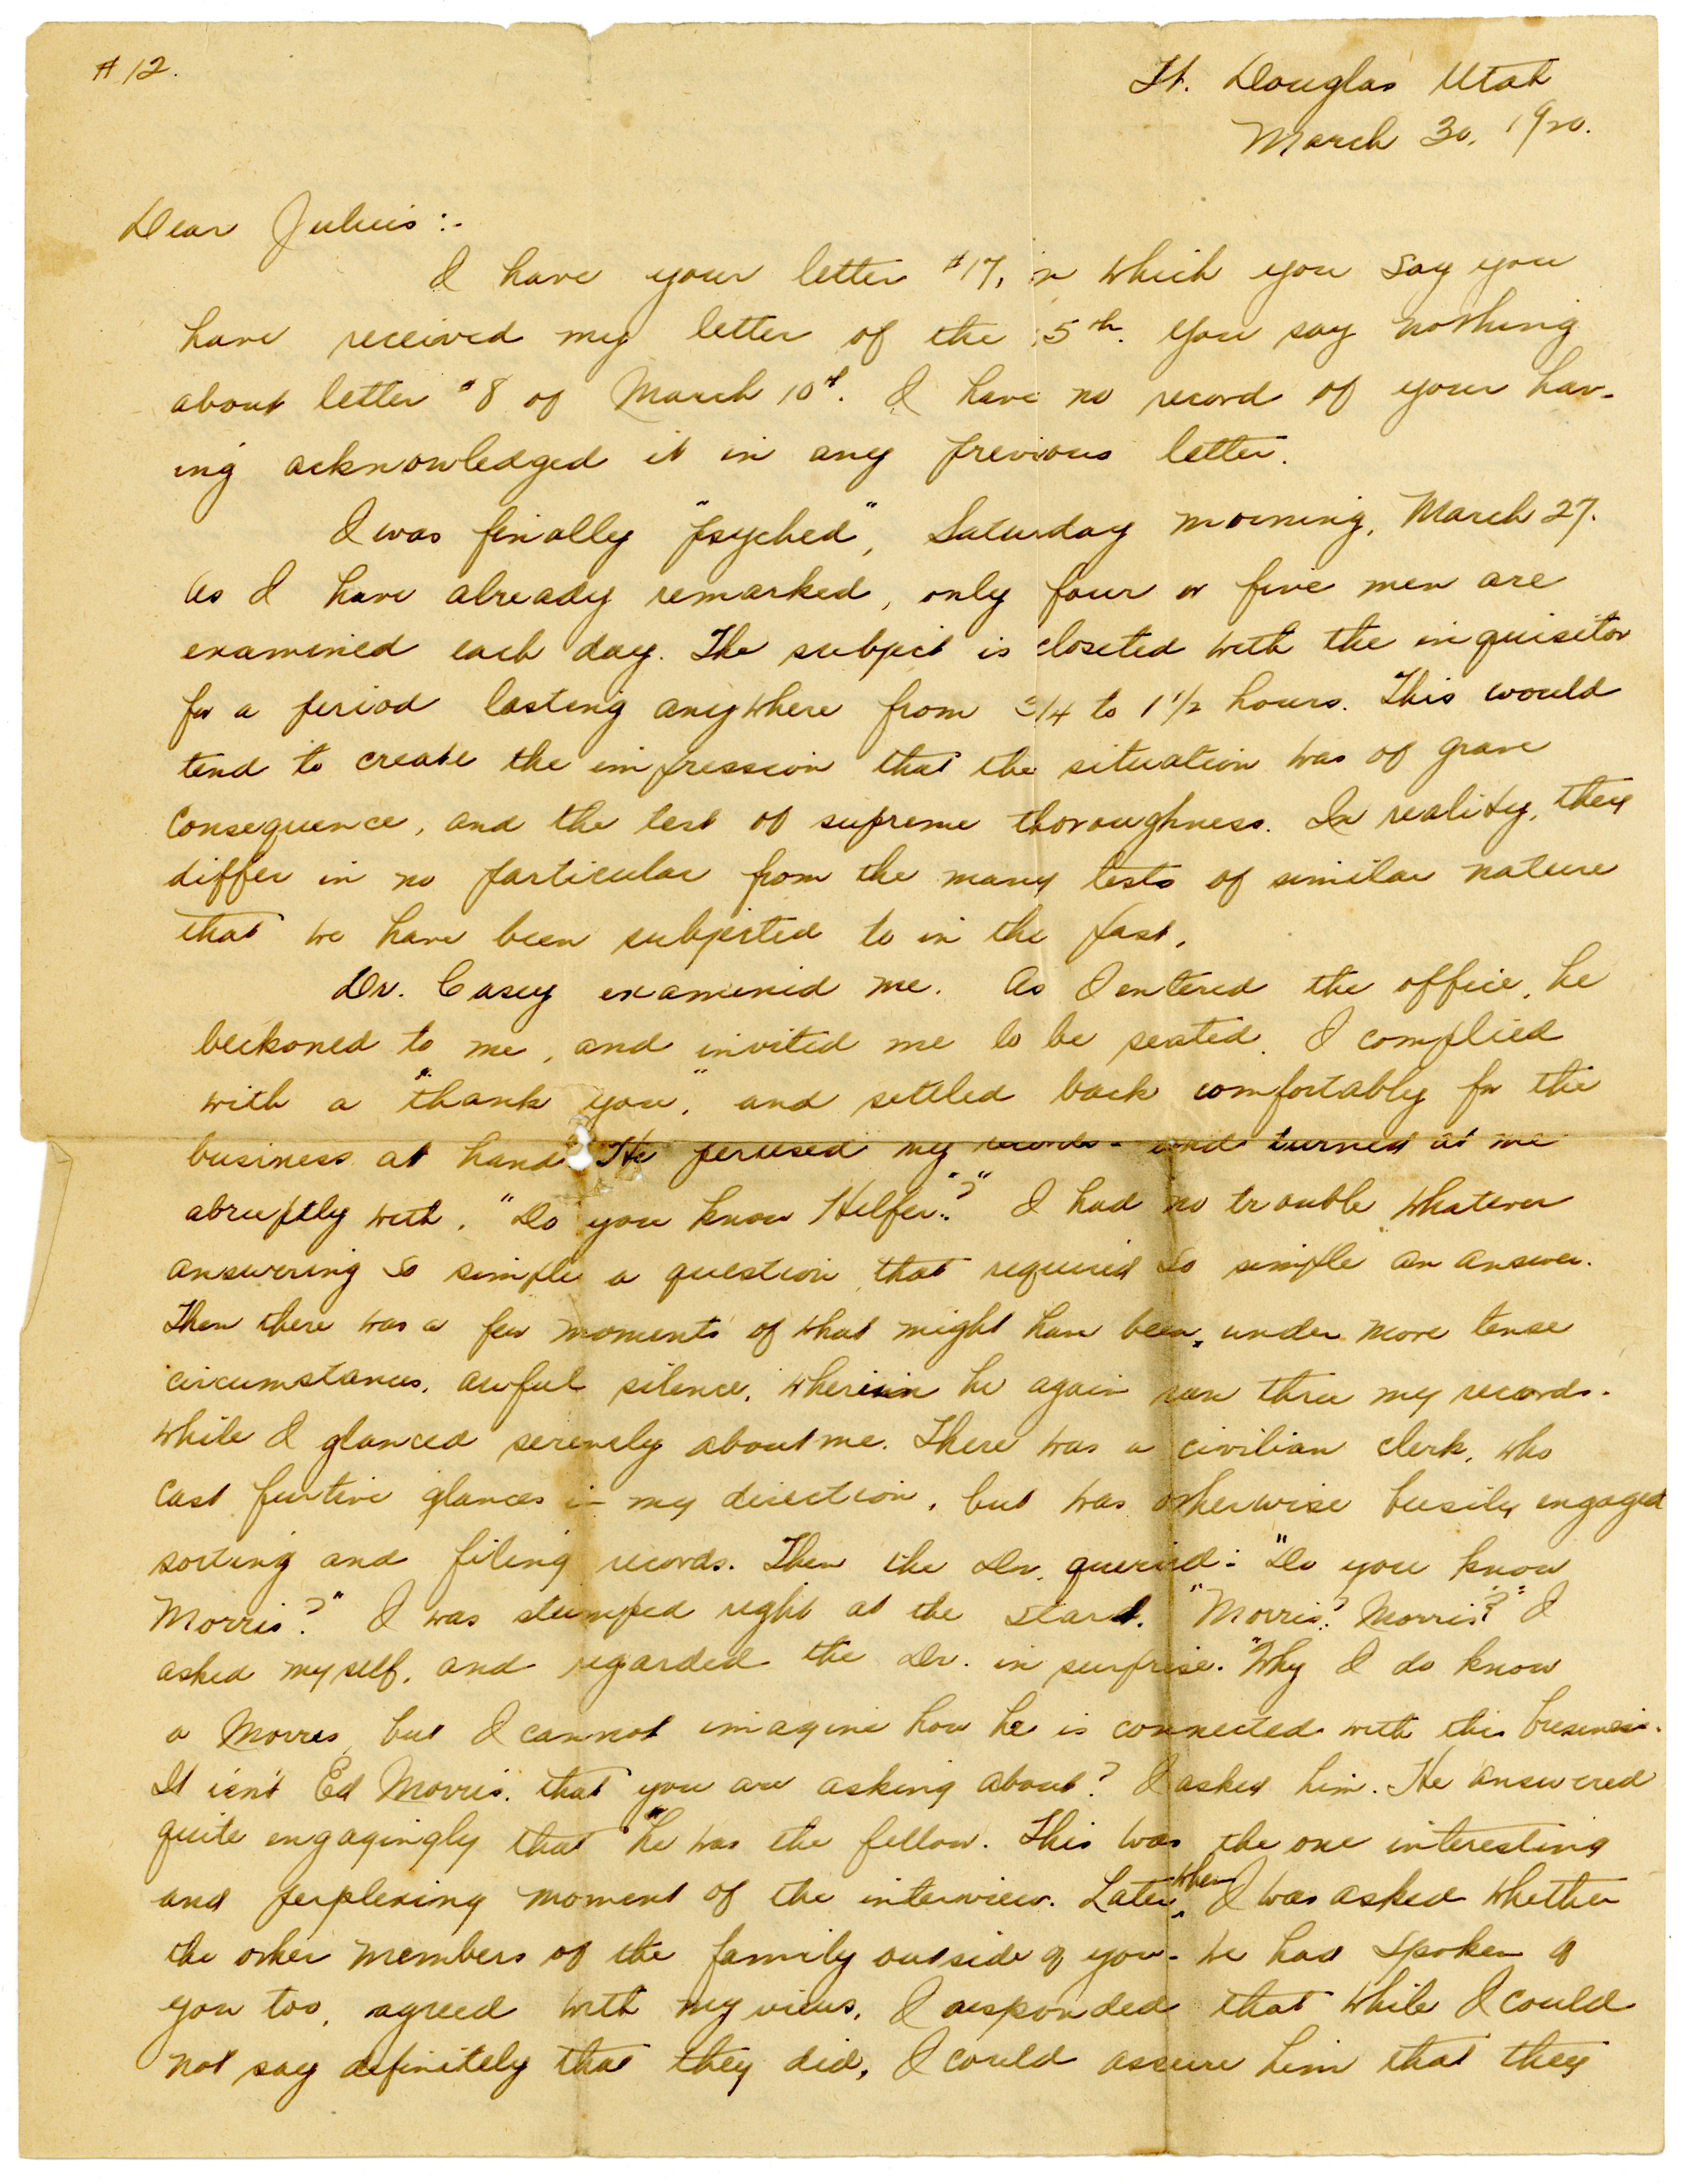 # 12.
Ft. Douglas Utah
March 30, 1920.
Dear Julius :-
I have your letter #17, in which you say you
have received my letter of the 5th. You say nothing
about letter #8 of March 10th. I have no record of your hav-
ing acknowledged it in any previous letter.
I was finally "psyched", Saturday morning, March 27.
As I have already remarked, only four or five men are
examined each day. The subject is closeted with the inquisitor
for a period lasting anywhere from 3/4 to 1 1/2 hours. This would
tend to create the impression that the situation was of grave
consequence, and the test of supreme thoroughness. In reality, they
differ in no particular from the many tests of similar nature
that we have been subjected to in the past.
Dr. Casey examined me. As I entered the office, he
beckoned to me, and invited me to be seated. I complied
with a "thank you," and settled back comfortably for the
business at hand. He perused my records - and turned at me
abruptly with, "Do you know Helfer?" I had no trouble whatever
answering so simple a question, that required so simple an answer.
Then there was a few moments of what might have been, under more tense
circumstances, awful silence, wherein he again ran thru my records -
while I glanced serenely about me. There was a civilian clerk, who
cast furtive glances in my direction, but was otherwise busily engaged
sorting and filing records. Then the Dr. queried: "Do you know
Morris?" I was stumped right at the start. "Morris? Morris?" I
asked myself, and regarded the Dr. in surprise. "Why I do know
a Morris, but I cannot imagine how he is connected with this business.
It isn't Ed Morris, that you are asking about? I asked him. He answered
quite engagingly that "he was the fellow. This was the one interesting
and perplexing moment of the interview. Later, when I was asked whether
the other members of the family outside of you - we had spoken of
you too, agreed with my views, I responded that while I could
not say definitely that they did, I could assure him that they